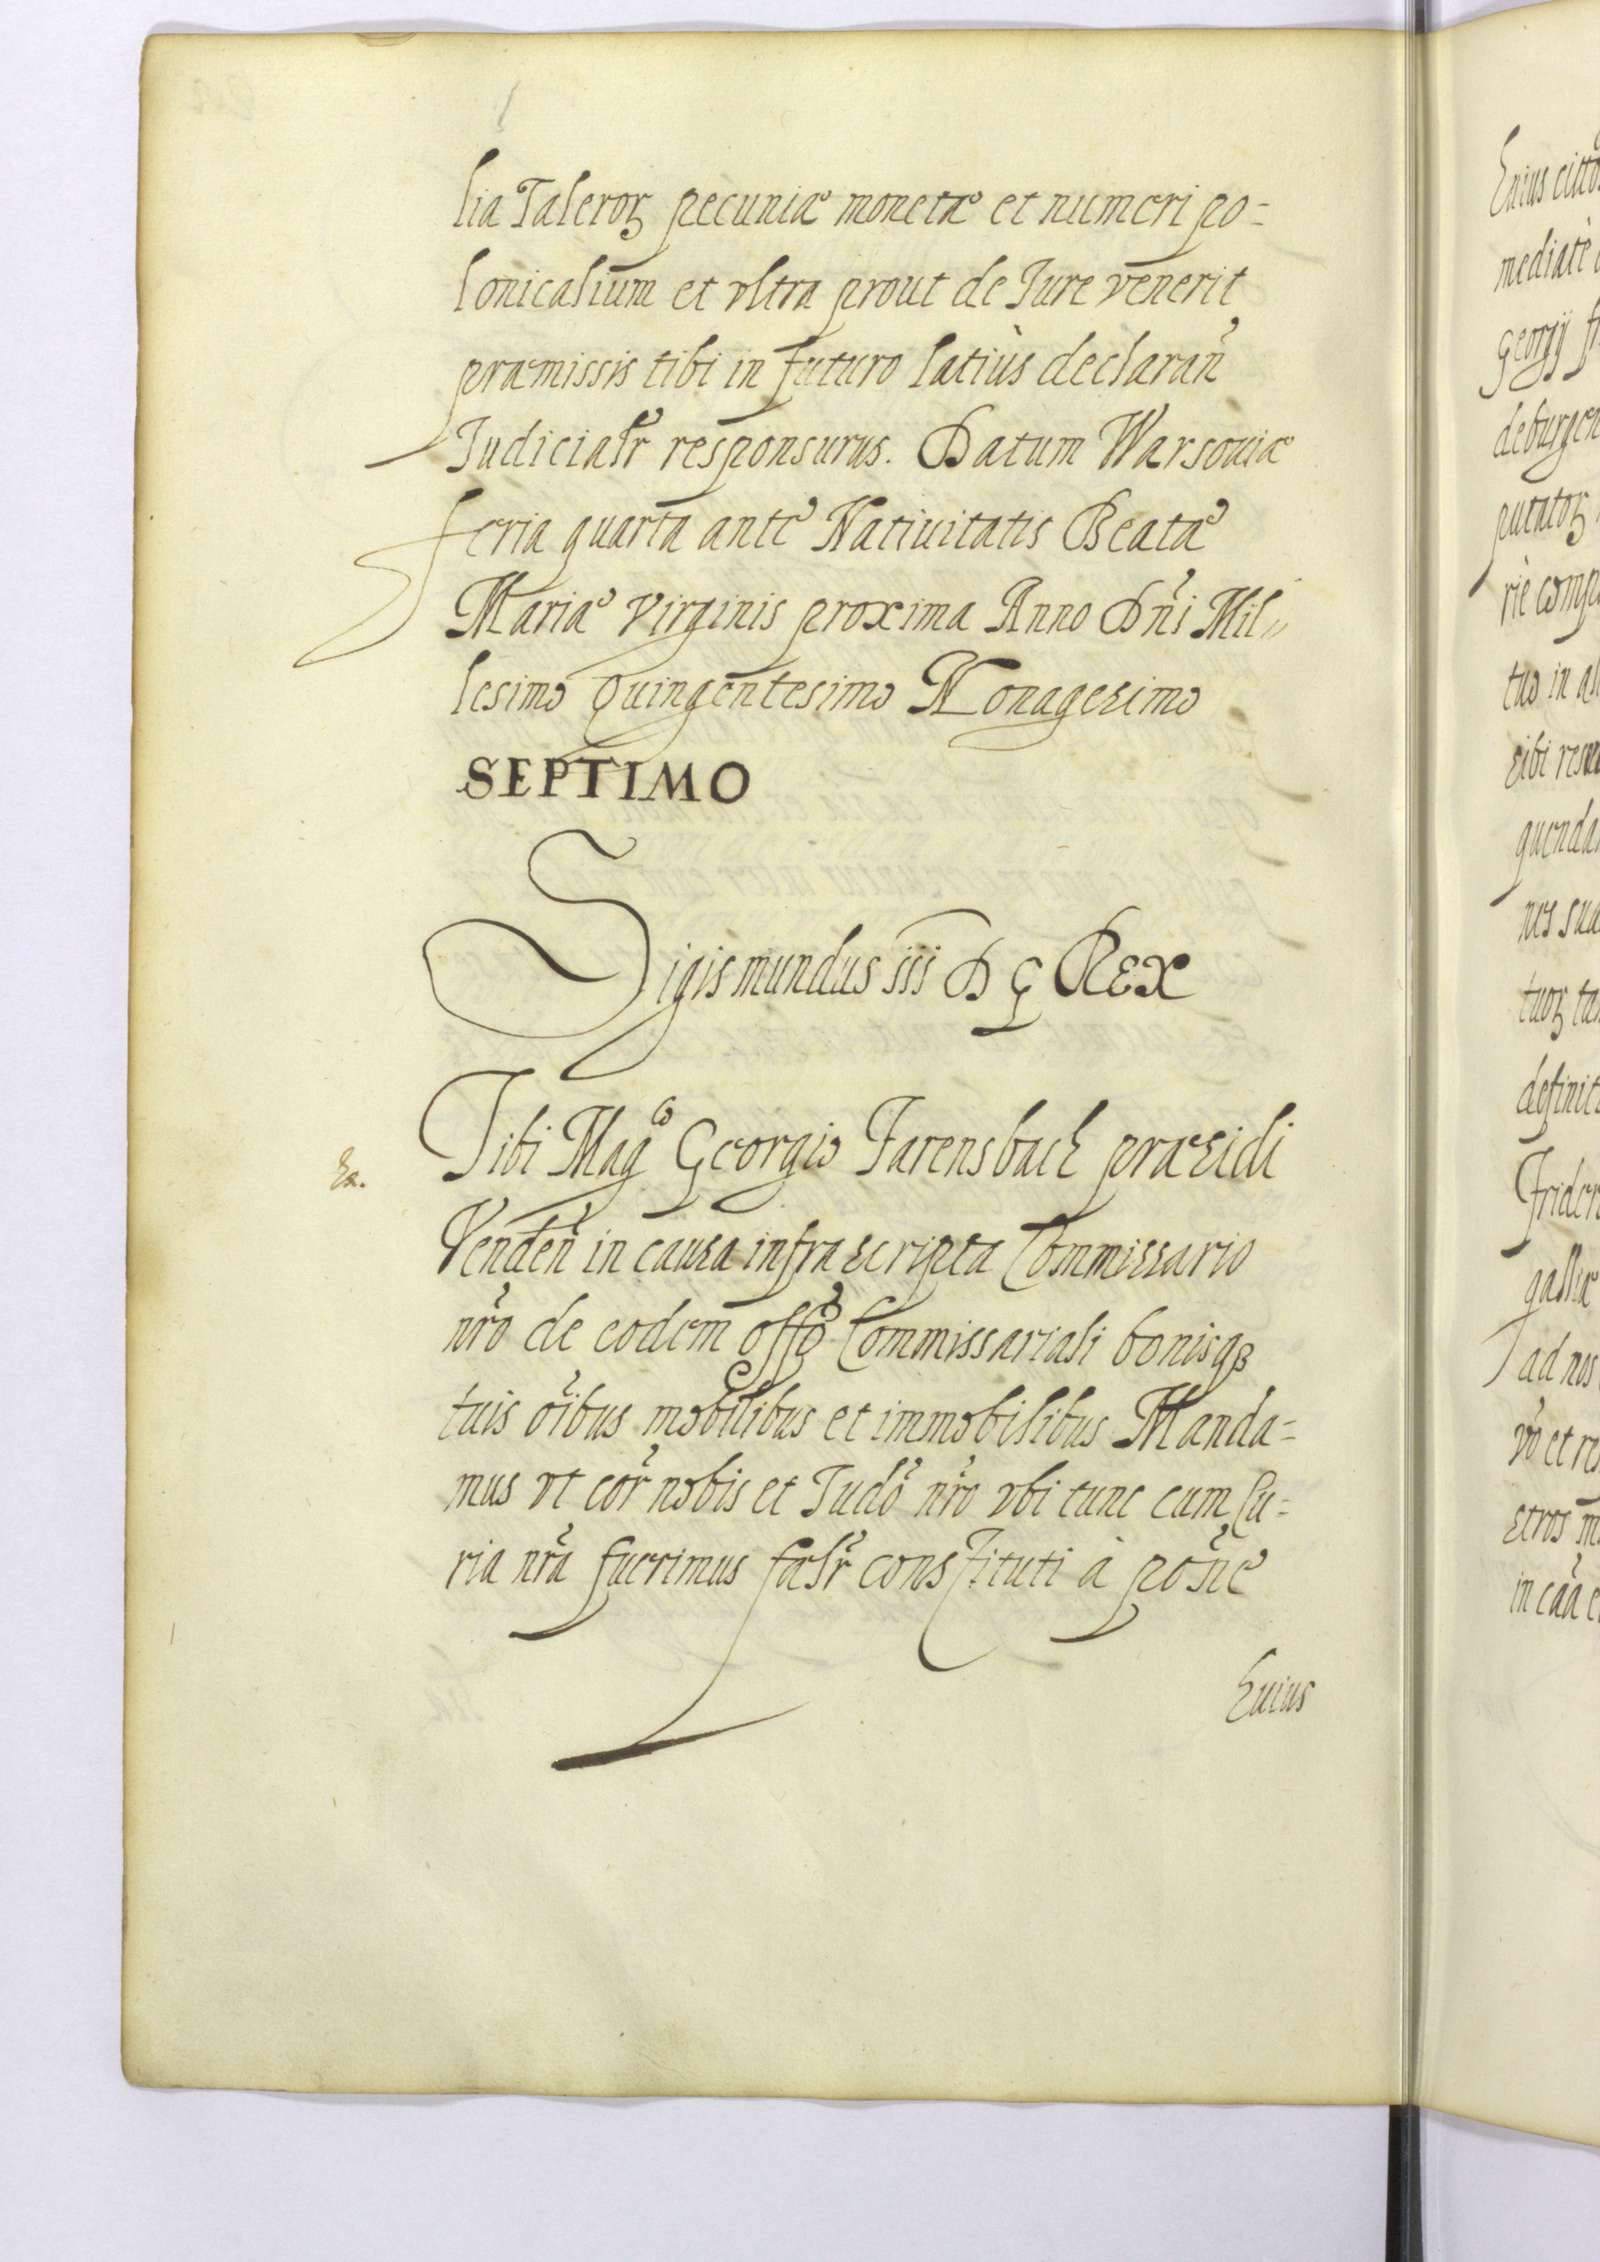 lia Taleroꝝ pecuniæ monetæ et numeri po=
lonicalium et vltra prout de Jure venerit
præmissis tibi in futuro latiùs declarañ
Judicialr̃ responsurus. Datum Warsouiæ
feria quarta ante Natiuitatis Beatæ
Mariæ virginis proxima Anno Dñi Mil=
lesimo Quingentesimo Nonagesimo
SEPTIMO
Sigismundus iii D G Rex
Tibi Magᶜᵒ Georgio Farensbach præsidi
Ex.
Venden̄ in causa infrascripta Commissario
nr̃o de eodem offᵒ Commissariali bonisqꝫ
tuis oĩbus mobilibus et immobilibus Manda=
mus vt cor̃ nobis et Judõ nr̃o vbi tunc cum Cu=
ria nr̃a fuerimus falr̃ constituti à poñe
huius
huius
mediatè
Georgij
deburgen
putatoꝝ
tuo in
sibi
quenda
nes sua
tuoꝝ
definit
Frider
galliæ
ad nos
et
in cãa